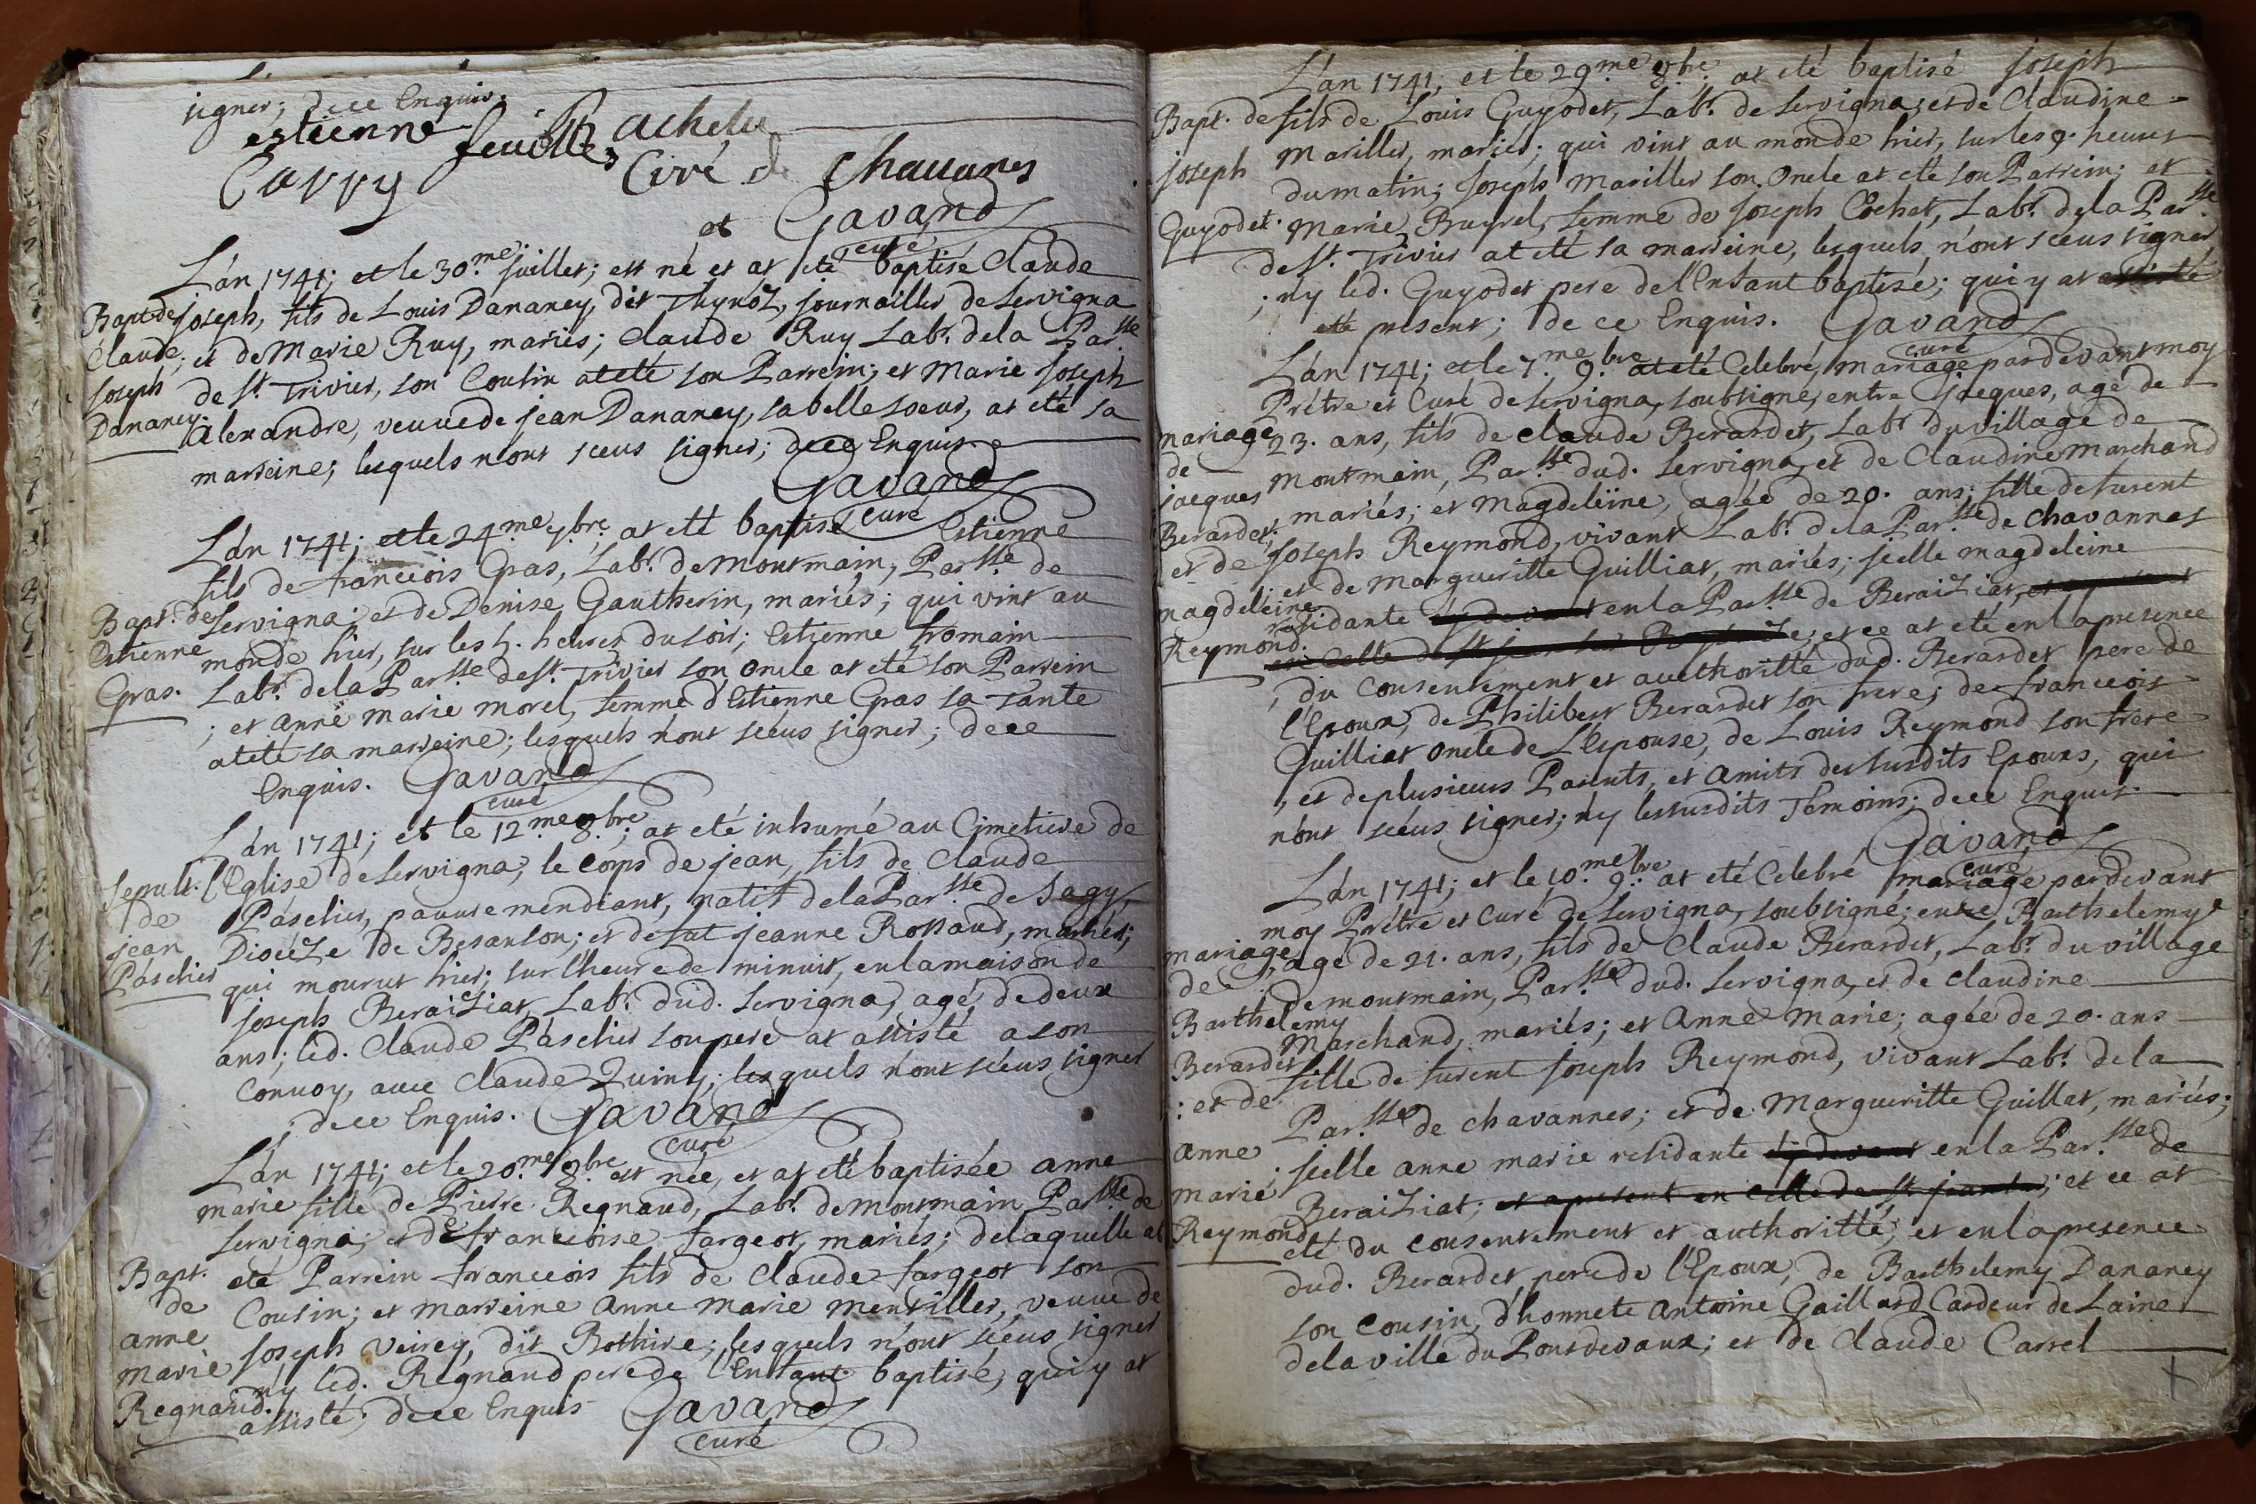 signer; de ce Enquis.
estienne feuillet Rachelu
Carry Curé de Chauanes
et Gavand
curé
L'án 1741; et le 30.me juillet; est né et at eté baptisé Claude
Bapt. de joseph, fils de Louis Dananey, dit Thynoz, journaillier de Servigna
Claude ; et de Marie Ruy, mariés; Claude Ruy Lab.r de la Par.sse
joseph de S.t Trivier, son Cousin at eté son Parrein; et Marie joseph
Dananey. Alexandre, veuve de jean Dananey, sa belle soeur, at eté sa
marreine; lesquels n'ont sceus signer; de ce Enquis.
Gavand
curé
L'án 1741; et le 24.me 7.bre at eté baptisé Estienne
fils de francois Gras, Lab.r de Montmain, Par.sse de
Bapt. de Servigna; et de Denise Gautherin, mariés; qui vint au
Estienne monde hier, sur les 5. heures du soir; Estienne fromain
Gras. Lab.r de la Par.sse de S.t Trivier son Oncle at eté son Parrein
; et Anne Marie Morel, femme d'Estienne Gras sa Tante
at eté sa marreine; lesquels n'ont scéus signer; de ce
Enquis. Gavand
curé
L'án 1741; et le 12.me 8.bre; at eté inhumé au Cimetiere de
Sepult. l'Eglise de Servigna, le corps de jean, fils de Claude
de Páschier, pauvre mendiant, natif de la Par.sse de Sagy,
jean Diocéze de Besanson; et de jeanne Rossaud, mariés;
Páschier qui mourut hier; sur l'heure de minuit, en la maison de
joseph Beraiziat, Lab.r dud. Servigna, agé de deux
ans; led. Claude Páschier son pere at assisté a son
Convoy, avec Claude Quiny; lesquels n'ont scéus signer
; de ce Enquis. Gavand
curé
L'án 1741; et le 20.me 8.bre est née, et at eté baptisée anne
marie fille de Pierre Regnaud, Lab.r de Montmain Par.sse de
Servigna; et de francoise fargeot, mariés; de laquelle at
Bapt. eté Parrein francois fils de Claude fargeot son
de Cousin; et marreine Anne Marie Mentiller, veuve de
anne joseph Veirey, dit Bothire; lesquels n'ont scéus signer
marie ny led. Regnaud pere de l'Enfant baptisé, qui y at
Regnaud. assisté; de ce Enquis Gavand
curé
L'án 1741; et le 29.me 8.bre at eté baptisé joseph
Bapt. de fils de Louis Guyodet, Lab.r de Servigna; et de Claudine
joseph Mariller, mariés; qui vint au monde hier, sur les 9. heures
du matin; joseph Mariller son Oncle at eté son Parrein; et
Guyodet. Marie Buyrel, femme de joseph Cochet, Lab.r de la Par.sse
de S.t Trivier at eté sa marreine, lesquels n'ont scéus signer
; ny led. Guyodet pere de l'Enfant baptisé; qui y at assisté
eté present; de ce Enquis. Gavand
curé
L'án 1741; et le 7.me 9.bre at eté Celebré, mariage pardevant moy
Prétre et Curé de Servigna, soubsigné, entre jacques, agé de
mariage 23. ans, fils de Claude Berardet, Lab.r du village de
de Montmain, Par.sse dud. Servigna, et de Claudine Marchand
jacques mariés; et Magdeleine, agée de 20. ans; fille de furent
Berardet; joseph Reymond, vivant Lab.r de la Par.sse de Chavannes
et de ; et de Margueritte Guilliat, mariés; icelle Magdeleine
magdeleine residante cy devant en la Par.sse de Beraiziat, et a present
Reymond. en celle de S.t jean; et ce at eté en la presence
, du consentement et authoritté dud. Berardet pere de
l'Epoux, de Philibert Berardet son frere; de francois
Guilliat Oncle de L'Espouse, de Louis Reymond son frere
, et de plusieurs Parents, et Amits des susdits Epoux, qui
n'ont scéus signer; ny les susdits Témoins; de ce Enquis.
Gavand
curé
L'án 1741; et le 10.me 9.bre at eté Celebré mariage pardevant
moy Prétre et Curé de Servigna, soubsigné; entre Barthelemy
mariage , agé de 21. ans, fils de Claude Berardet, Lab.r du village
de de Montmain, Par.sse dud. Servigna, et de Claudine
Barthelemy Marchand, mariés; et Anne Marie; agée de 20. ans
Berardet fille de furent joseph Reymond, vivant Lab.r de la
; et de Par.sse de Chavannes; et de Margueritte Guillat, mariés;
Anne icelle Anne Marie residante cy devant en la Par.sse de
Marie Beraiziat; et a present en celle de S.t jean; et ce at
Reymond eté du consentement et authoritté; et en la presence
dud. Berardet pere de l'Epoux, de Barthelemy Dananey
son Cousin, d'honnete Antoine Gaillard Cardeur de Laine
de la ville du Pontdevaux; et de Claude Carrel